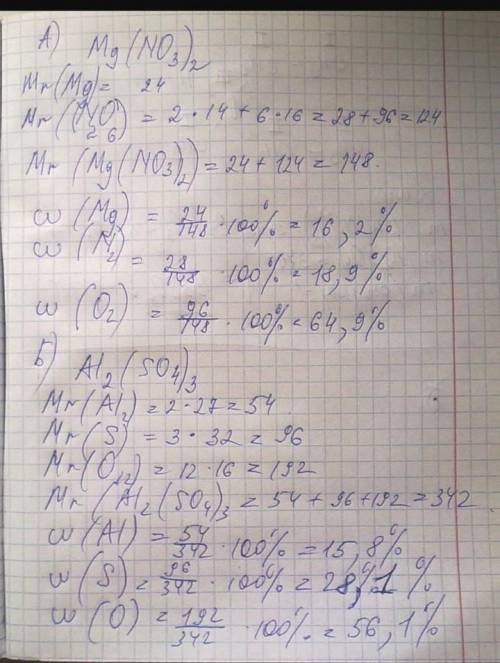 А) Mg(NO3)2
Mr(Mg)= 24
Mr(N2O6) = 2·14 + 6·16 = 28+96=124
Mr(Mg(NO3)2)=24+124=148.
ω(Mg) = 24/148 · 100% = 16,2%
ω(N2) = 28/148 · 100% = 18,9%
ω(O2) = 96/148 · 100% = 64,9%
Б) Al2(SO4)3
Mr(Al2)=2·27=54
Mr(S) = 3·32=96
Mr(O12)=12·16=192
Mr(Al2(SO4)3=54+96+192=342.
ω(Al) = 54/342 · 100% = 15,8%
ω(S) = 96/342 · 100% = 28,1%
ω(O) = 192/342 · 100% = 56,1%